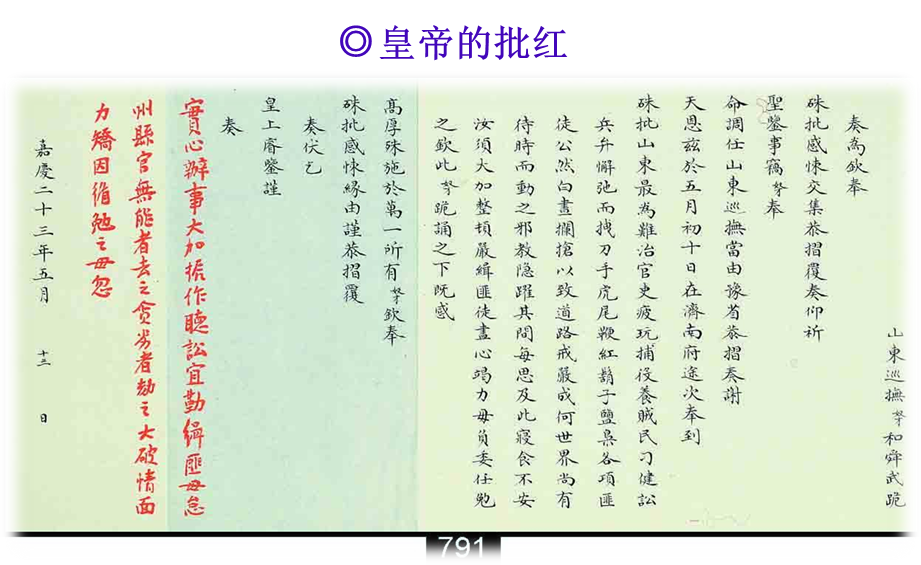 ◎皇帝的批红
山東巡撫奴才和舜武跪
奏為欽奉
硃批感悚交集恭摺覆奏仰祈
聖鑒事竊奴才奉
命調任山東巡撫當由豫省恭摺奏謝
天恩茲於五月初十日在濟南府途次奉到
硃批山東最為難治官吏疲玩捕役養賊民刁健訟
兵弁懈弛而拽刀手虎尾鞭紅鬍子鹽梟各項匪
徒公然白晝攔搶以致道路戒嚴成何世界尚有
待時而動之邪教隐躍其間每思及此寢食不安
汝須大加整頓嚴緝匪徒盡心竭力毋負委任勉
之欽此奴才跪誦之下既感
高厚殊施於萬一所有奴才欽奉
硃批感悚緣由謹恭摺覆
奏伏乞
皇上睿鑒謹
奏
實心辦事大加振作聽訟宜勤緝匪毋怠
州縣官無能者去之貪劣者劾之大破情面
力矯因循勉之毋忽
嘉慶二十三年五月 十三 日
791